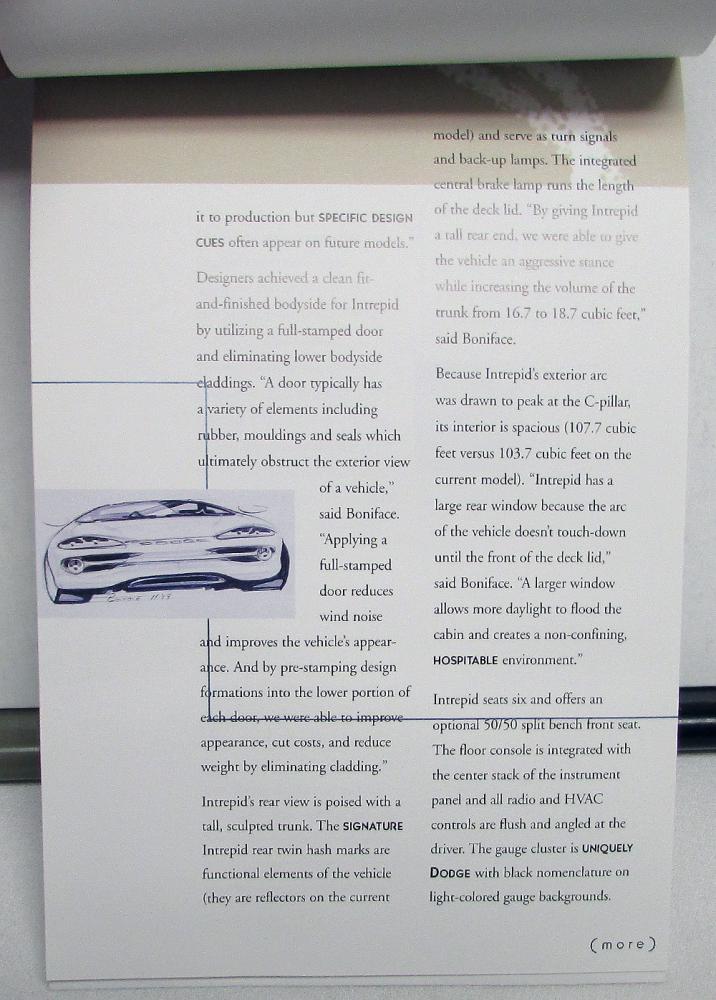 it to production but SPECIFIC DESIGN
CUES often appear on future models.”
Designers achieved a clean fit-
and-finished bodyside for Intrepid
by utilizing a full-stamped door
and eliminating lower bodyside
claddings. “A door typically has
a variety of elements including
rubber, mouldings and seals which
ultimately obstruct the exterior view
of a vehicle,”
said Boniface.
“Applying a
full-stamped
door reduces
wind noise
and improves the vehicle’s appear-
ance. And by pre-stamping design
formations into the lower portion of
each door, we were able to improve
appearance, cut costs, and reduce
weight by eliminating cladding.”
Intrepid’s rear view is poised with a
tall, sculpted trunk. The SIGNATURE
Intrepid rear twin hash marks are
functional elements of the vehicle
(they are reflectors on the current
model) and serve as turn signals
and back-up lamps. The integrated
central brake lamp runs the length
of the deck lid. “By giving Intrepid
a tall rear end, we were able to give
the vehicle an aggressive stance
while increasing the volume of the
trunk from 16.7 to 18.7 cubic feet,”
said Boniface.
Because Intrepid’s exterior arc
was drawn to peak at the C-pillar,
its interior is spacious (107.7 cubic
feet versus 103.7 cubic feet on the
current model). “Intrepid has a
large rear window because the arc
of the vehicle doesn’t touch-down
until the front of the deck lid,”
said Boniface. “A larger window
allows more daylight to flood the
cabin and creates a non-confining,
HOSPITABLE environment.”
Intrepid seats six and offers an
optional 50/50 split bench front seat.
The floor console is integrated with
the center stack of the instrument
panel and all radio and HVAC
controls are flush and angled at the
driver. The gauge cluster is UNIQUELY
DODGE with black nomenclature on
light-colored gauge backgrounds.
(more)